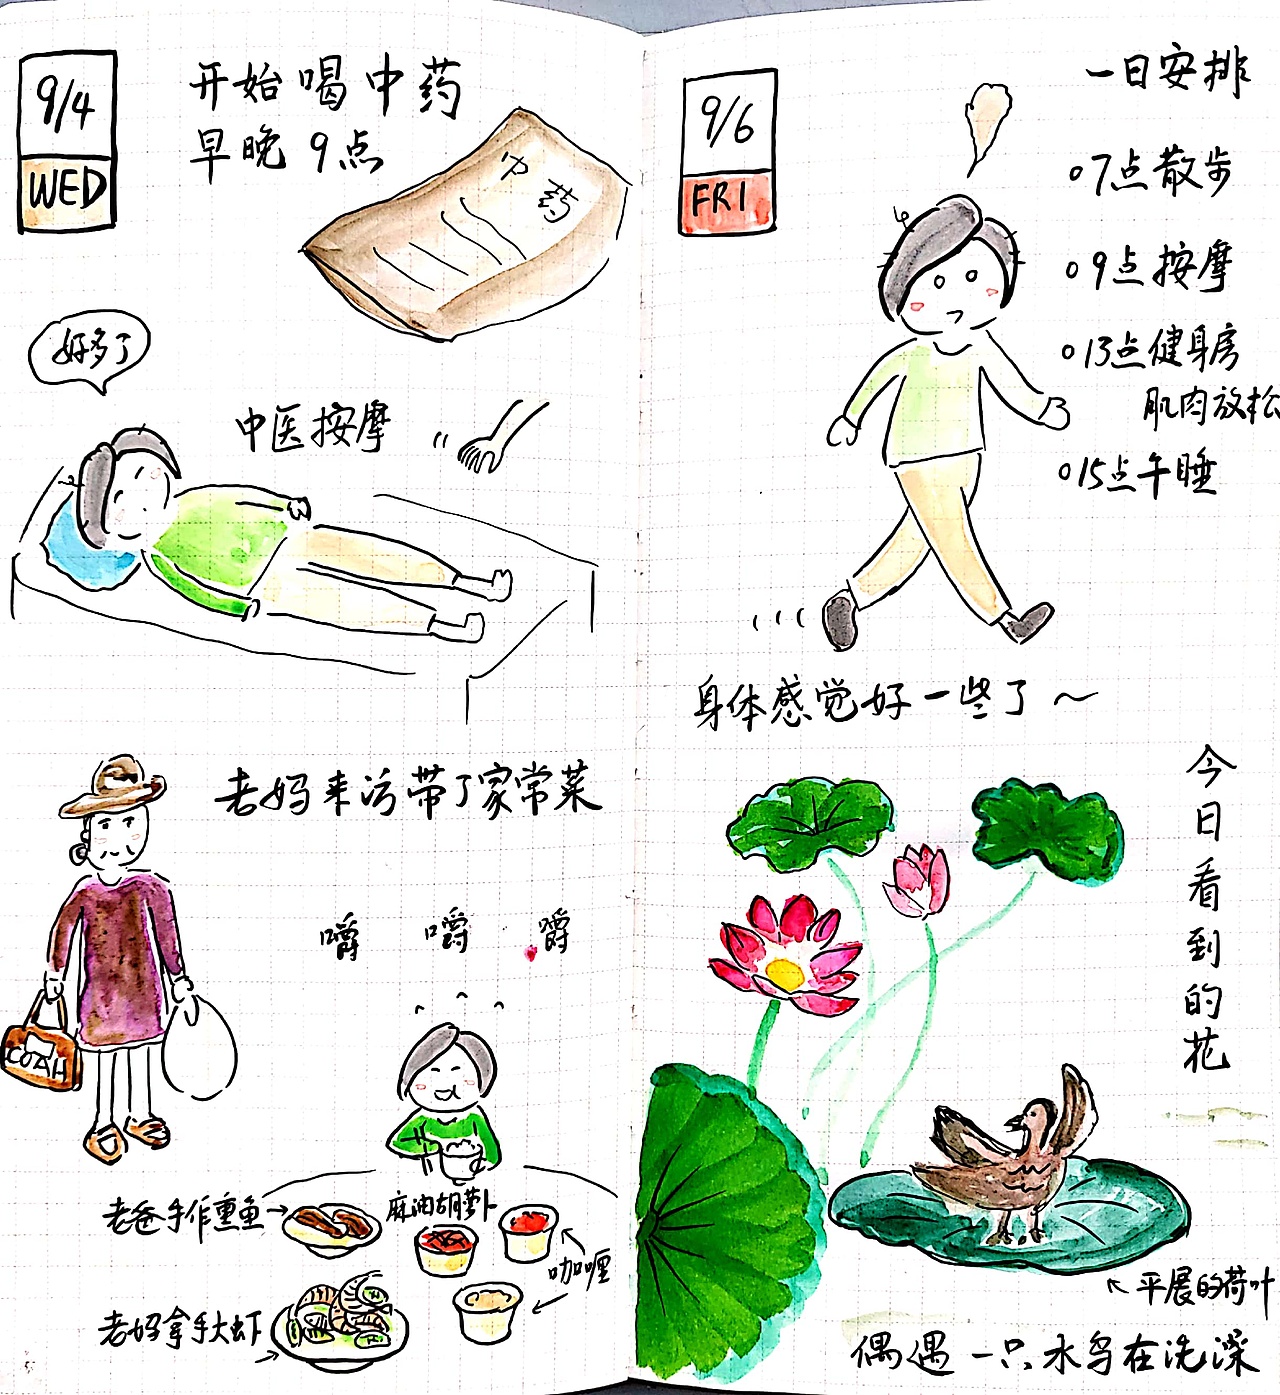 9/4
WED
开始喝中药
早晚9点
中药
好多了
中医按摩
老妈来访带了家常菜
嚼 嚼 嚼
COAH
老爸手作熏鱼
麻油胡萝卜
咖喱
老妈拿手大虾
9/6
FRI
一日安排
7点散步
9点按摩
13点健身房
肌肉放松
15点午睡
身体感觉好一些了～
今日看到的花
平展的荷叶
偶遇一只水鸟在洗澡